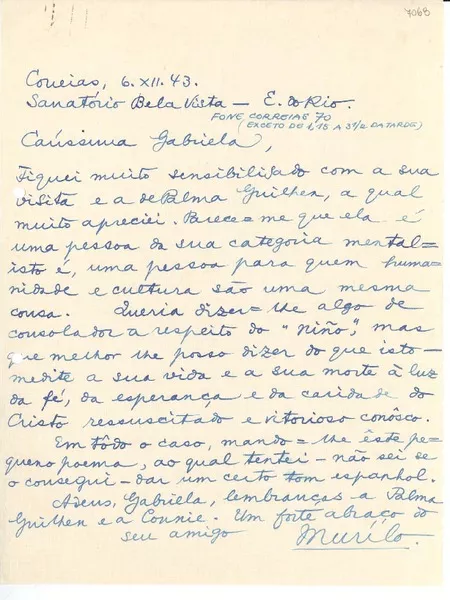 7068
Correias, 6.XII.43.
Sanatório Bela Vista — E. do Rio.
FONE CORREIAS 70
(EXCETO DE 1,15 A 3½ DA TARDE)
Caríssima Gabriela,
Fiquei muito sensibilisado com a sua
visita e a de Palma Guilhen, a qual
muito apreciei. Parece=me que ela é
uma pessoa da sua categoria mental=
isto é, uma pessoa para quem huma=
nidade e cultura são uma mesma
cousa. Queria dizer=lhe algo de
consolador a respeito do "niño", mas
que melhor lhe posso dizer do que isto —
medite a sua vida e a sua morte à luz
da fé, da esperança e da caridade do
Cristo ressuscitado e vitorioso conôsco.
Em tôdo o caso, mando=lhe êste pe=
queno poema, ao qual tentei — não sei se
o consegui — dar um certo tom espanhol.
Adeus, Gabriela, lembranças a Palma
Guilhen e a Connie. Um forte abraço do
seu amigo Murilo.